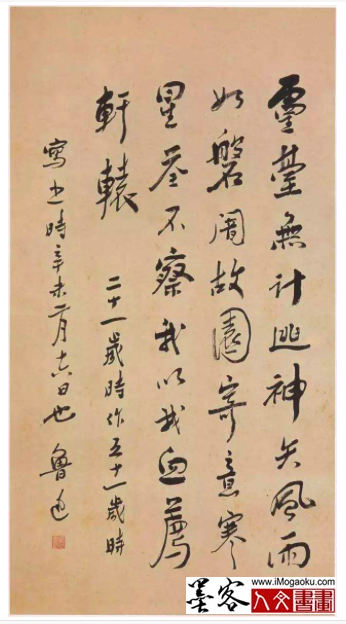 靈臺無計逃神矢風雨
如磐闇故園寄意寒
星荃不察我以我血薦
軒轅 二十一歲時作五十一歲時
寫之時辛未二月十六日也 魯迅
墨客
www.iMogaoku.com
人文書畫